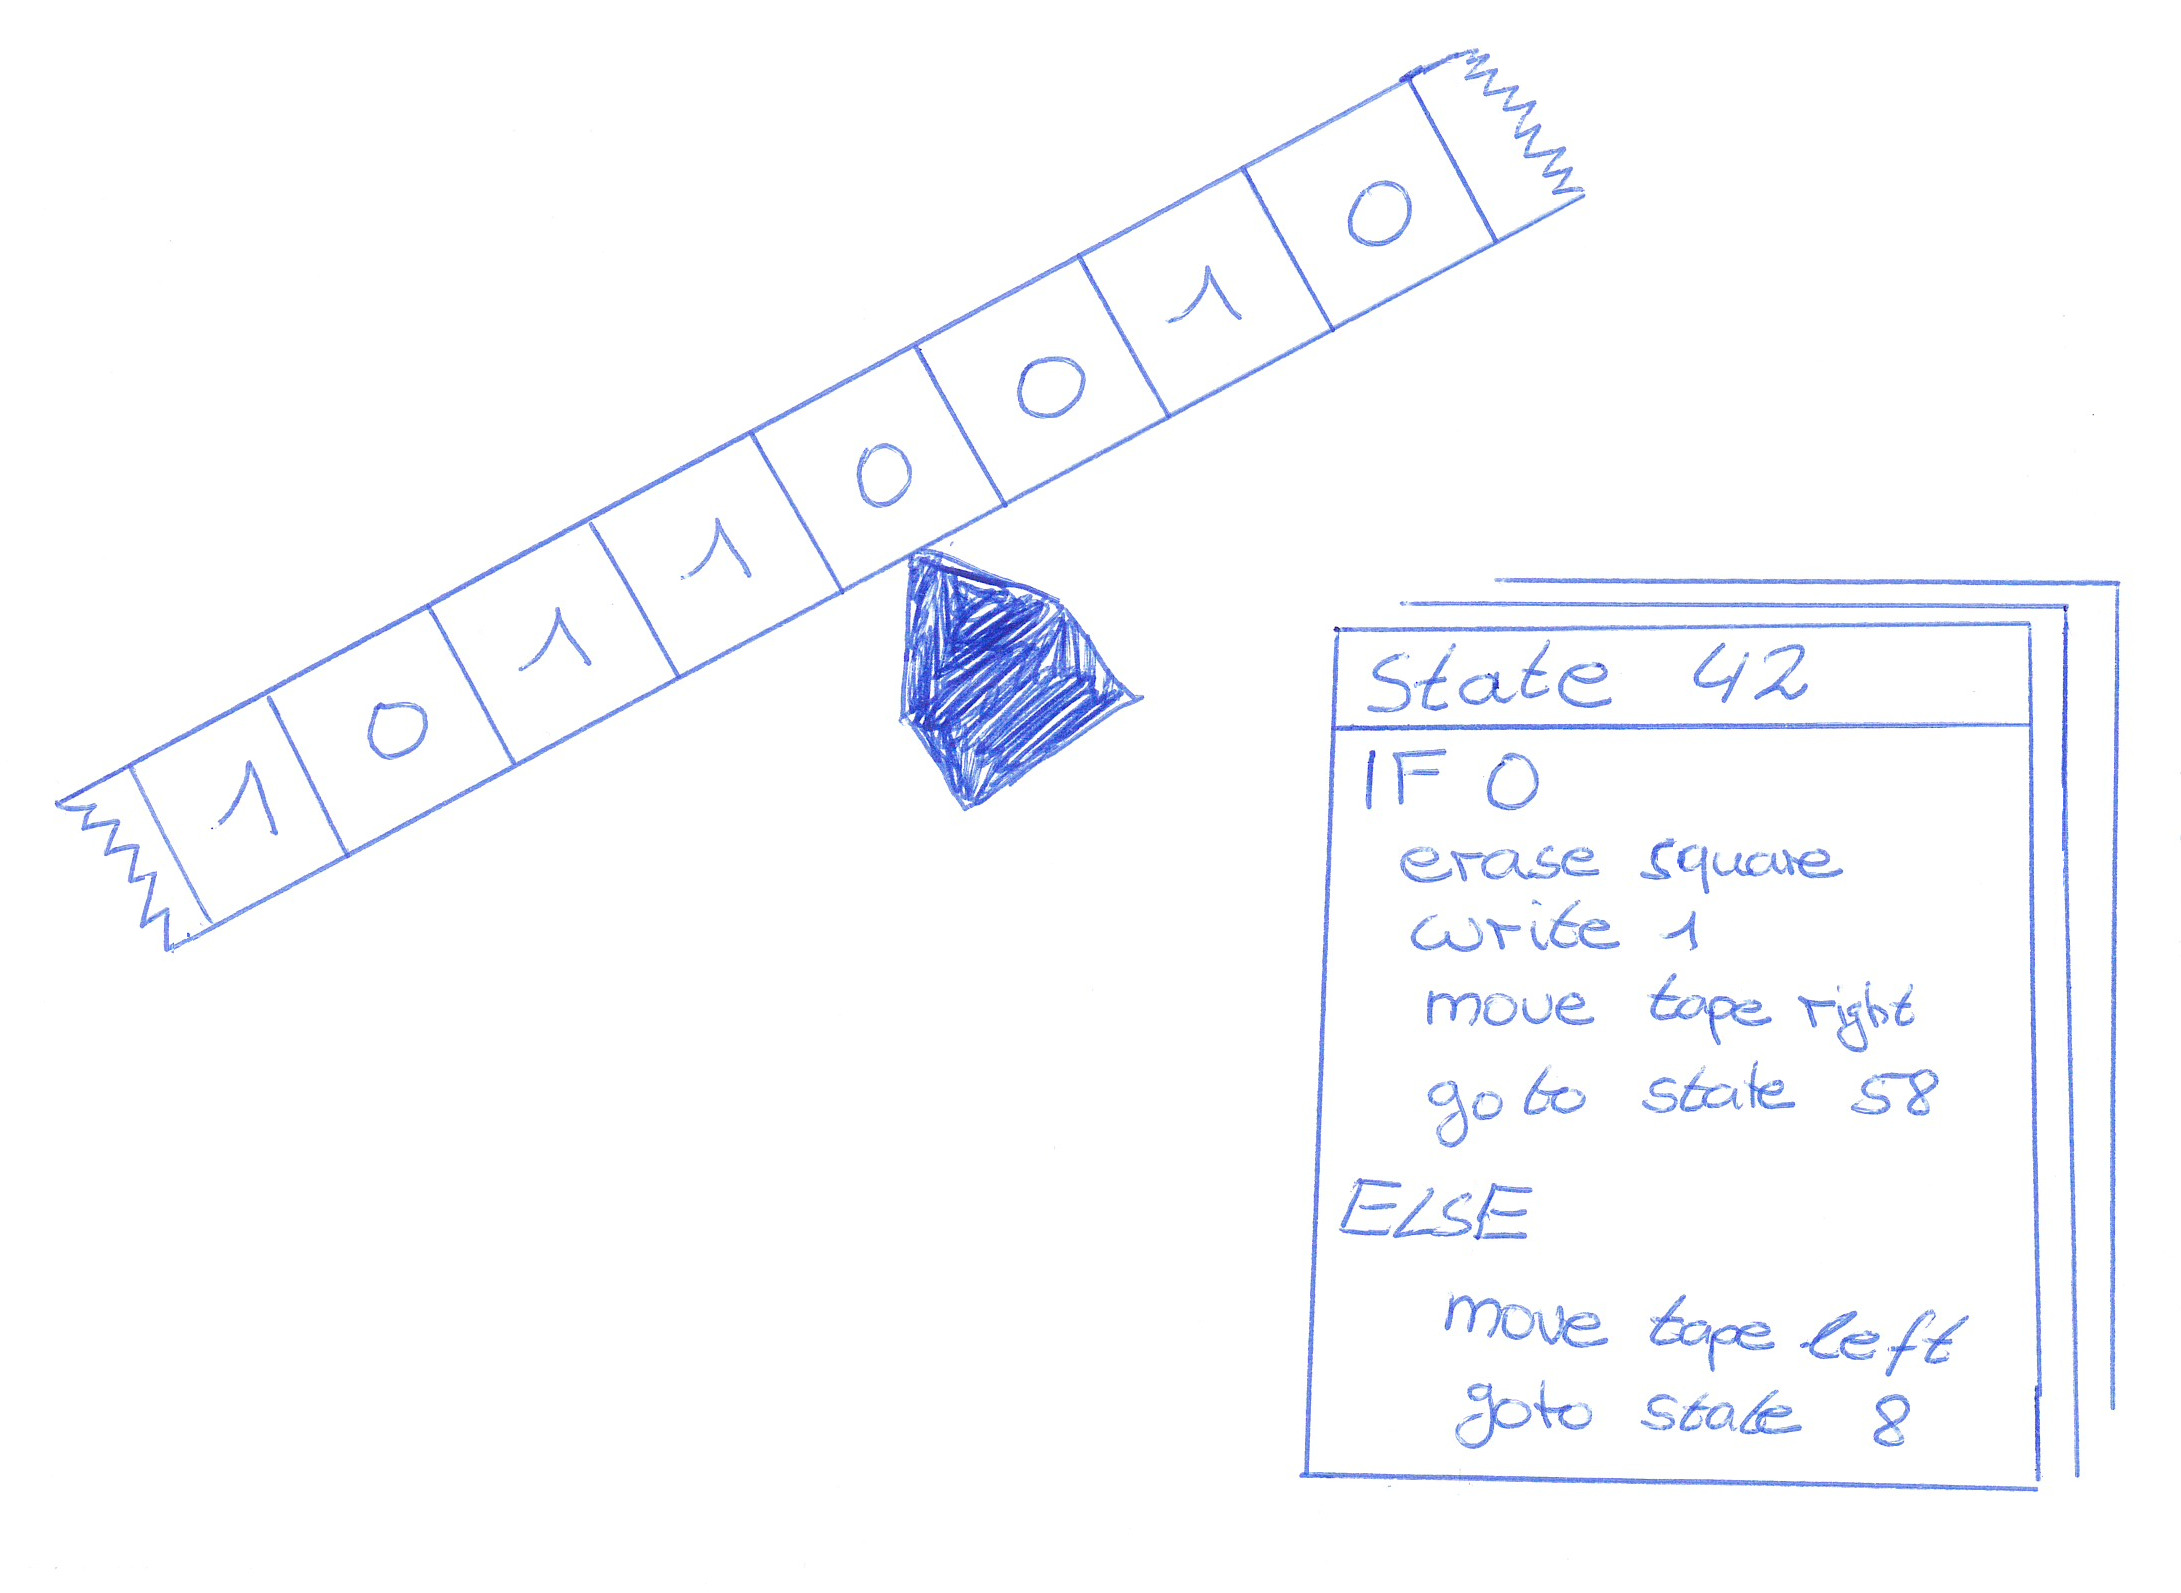 1 0 1 1 0 0 1 0
State 42
IF 0
erase square
write 1
move tape right
go to state 58
ELSE
move tape left
goto state 8